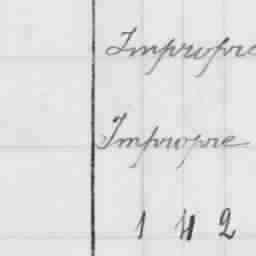 Impropre
Impropre
1 4 2